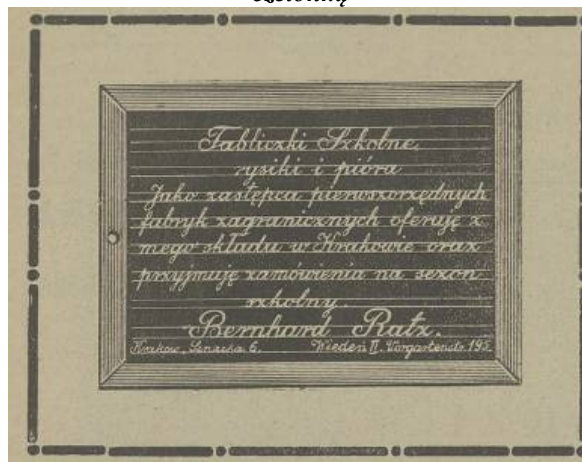 Tabliczki Szkolne,
rysiki i pióra
Jako zastępca pierwszorzędnych
fabryk zagranicznych oferuję z
mego składu w Krakowie oraz
przyjmuję zamówienia na sezon
szkolny.
Bernhard Ratz.
Kraków, 6. Wiedeń II. Vorgartenstr. 195.